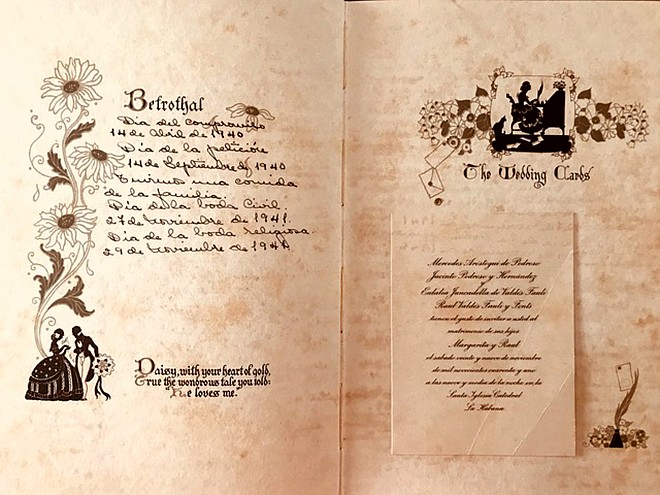 Betrothal
Dia del compromiso
14 de Abril de 1940
Dia de la petición
14 de Septiembre de 1940
Tuvimos una comida
de la familia.
Dia de la boda Civil.
27 de Noviembre de 1941.
Dia de la boda religiosa.
29 de Noviembre de 1941
Daisy, with your heart of gold,
True the wondrous tale you told:
"He loves me."
The Wedding Cards
Mercedes Aróstegui de Pedroso
Jacinto Pedroso y Hernández
y
Eulalia Juncadella de Valdés Fauli
Raul Valdés Fauli y Fonts
tienen el gusto de invitar a usted al
matrimonio de sus hijos
Margarita y Raul
el sábado veinte y nueve de noviembre
de mil novecientos cuarenta y uno
a las nueve y media de la noche en la
Santa Iglesia Catedral
La Habana